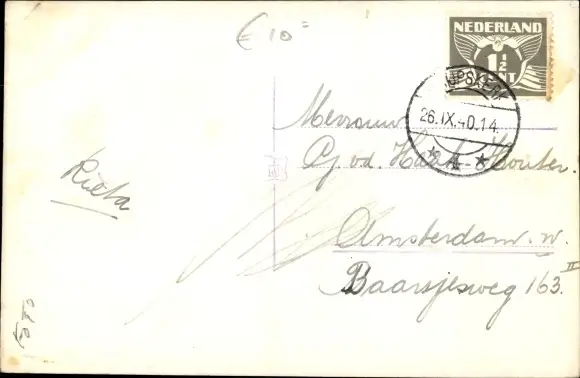 € 10 =
NEDERLAND
1½
CENT
26.IX.40.14
Mevrouw
v.d. Haak-Houter.
Amsterdam. W.
Baarsjesweg 163 II
Rieta